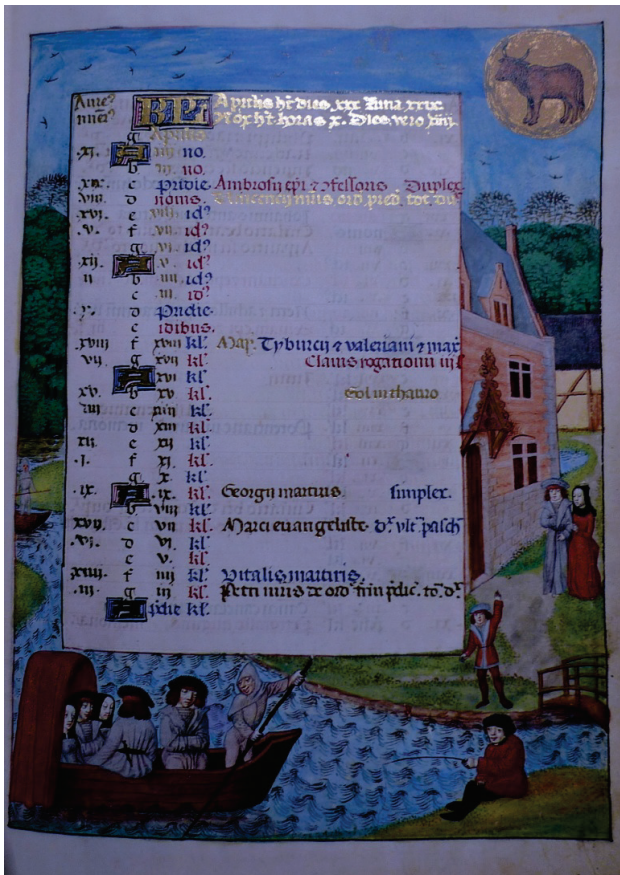 KL Aprilis ht dies xxx luna xxix
Nox ht horas x. Dies vero xiiij
g Aprilis
.xi. A iiij no.
b iij no.
.xix. c pridie Ambrosij epi z ofessoris Duplex
viij d nonis.
.xvi. e viij id9
.v. f vij id9
g vi id9
.xij. A v id9
ij b iiij id9
c iij id9
.x. d Pridie
e idibus.
.xviij f xviij kl. Tyburcij z valeriani z mar
vij g xvij kl. Clavis rogationum
A xvi kl.
xv. b xv kl. Sol in thauro
iiij c xiiij kl.
d xiij kl.
xij e xij kl.
.i. f xi. kl.
g x. kl.
.ix. A ix kl. Georgij martiris simplex.
b viij kl.
xvij c vij kl. Marci evangeliste
.vi. d vi. kl.
e v. kl.
xiiij f iiij kl. Vitalis martiris.
.iij. g iij kl. Petri
A pridie kl.